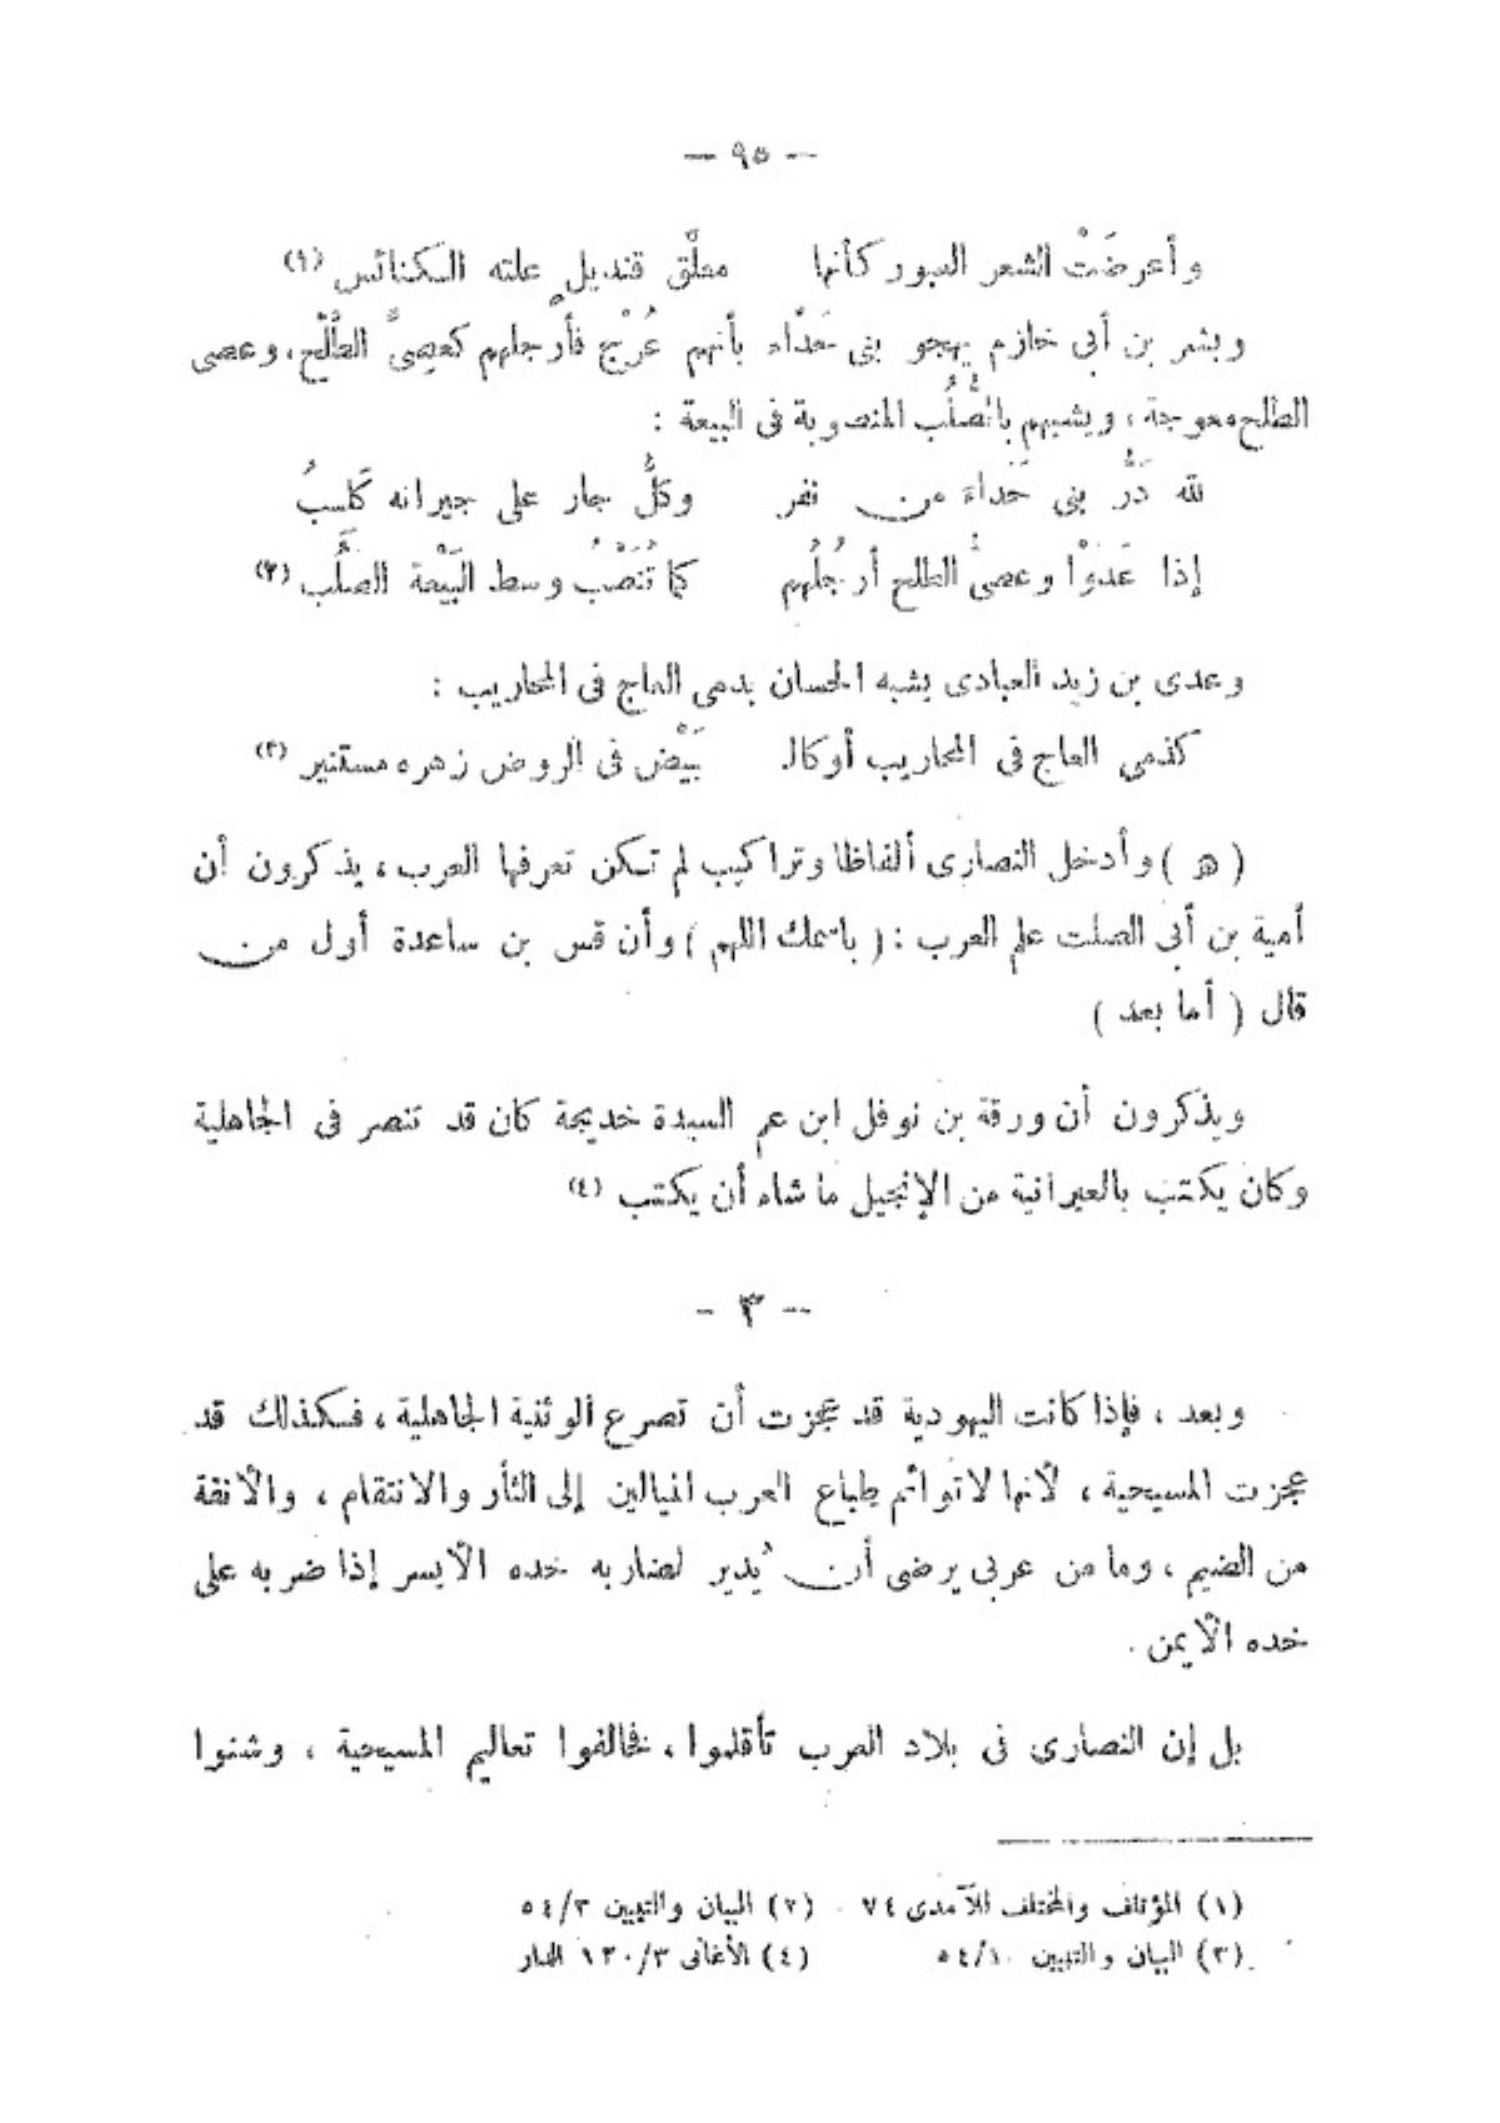 — ٩٥ —
وأعرضَتْ الشعر العبور كأنها معلَّق قنديل علته الكنائس (١)
وبشر بن أبى خازم يهجو بنى حَدَّاء بأنهم عُرْج فأرجلهم كعِصِىِّ الطَّلْح، وعصى
الطلح معوجة، ويشبههم بالصُّلُب المنصوبة فى البيعة :
لله دَرُّ بنى حَدَاءَ من نفر وكلُّ جار على جيرانه كَلِبُ
إذا غَدَوْا وعصىُّ الطلح أرجُلُهم كما تُنَصَبُ وسط البَيْعة الصُلُب (٢)
وعدى بن زيد العبادى يشبه الحسان بدمى العاج فى المحاريب :
كدمى العاج فى المحاريب أو كالـ بَيْض فى الروض زهره مستنير (٣)
( هـ ) وأدخل النصارى ألفاظا وتراكيب لم تكن تعرفها العرب، يذكرون أن
أمية بن أبى الصلت علم العرب : ( باسمك اللهم ) وأن قس بن ساعدة أول من
قال ( أما بعد )
ويذكرون أن ورقة بن نوفل ابن عم السيدة خديجة كان قد تنصر فى الجاهلية
وكان يكتب بالعبرانية من الإنجيل ما شاء أن يكتب (٤)
- ٣ -
وبعد ، فإذا كانت اليهودية قد عجزت أن تصرع الوثنية الجاهلية، فكذلك قد
عجزت المسيحية ، لأنها لا توائم طباع العرب الميالين إلى الثأر والانتقام ، والأنفة
من الضيم ، وما من عربى يرضى أن يُدير لضاربه خده الأيسر إذا ضربه على
خده الأيمن .
بل إن النصارى فى بلاد العرب تأقلموا، فخالفوا تعاليم المسيحية ، وشنوا
(١) المؤتلف والمختلف للآمدى ٧٤ (٢) البيان والتبيين ٥٤/٣
(٣) البيان والتبيين ٥٤/١ (٤) الأغانى ١٣٠/٣